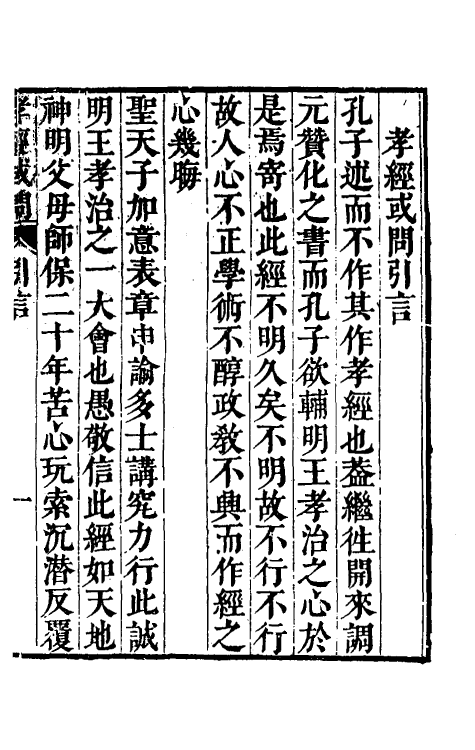 孝經或問引言
孔子述而不作其作孝經也葢繼徃開來調
元贊化之書而孔子欲輔明王孝治之心於
是焉寄也此經不明久矣不明故不行不行
故人心不正學術不醇政敎不興而作經之
心幾晦
聖天子加意表章申諭多士講究力行此誠
明王孝治之一大會也愚敬信此經如天地
神明父母師保二十年苦心玩索沉潜反覆
孝經或問 引言 一